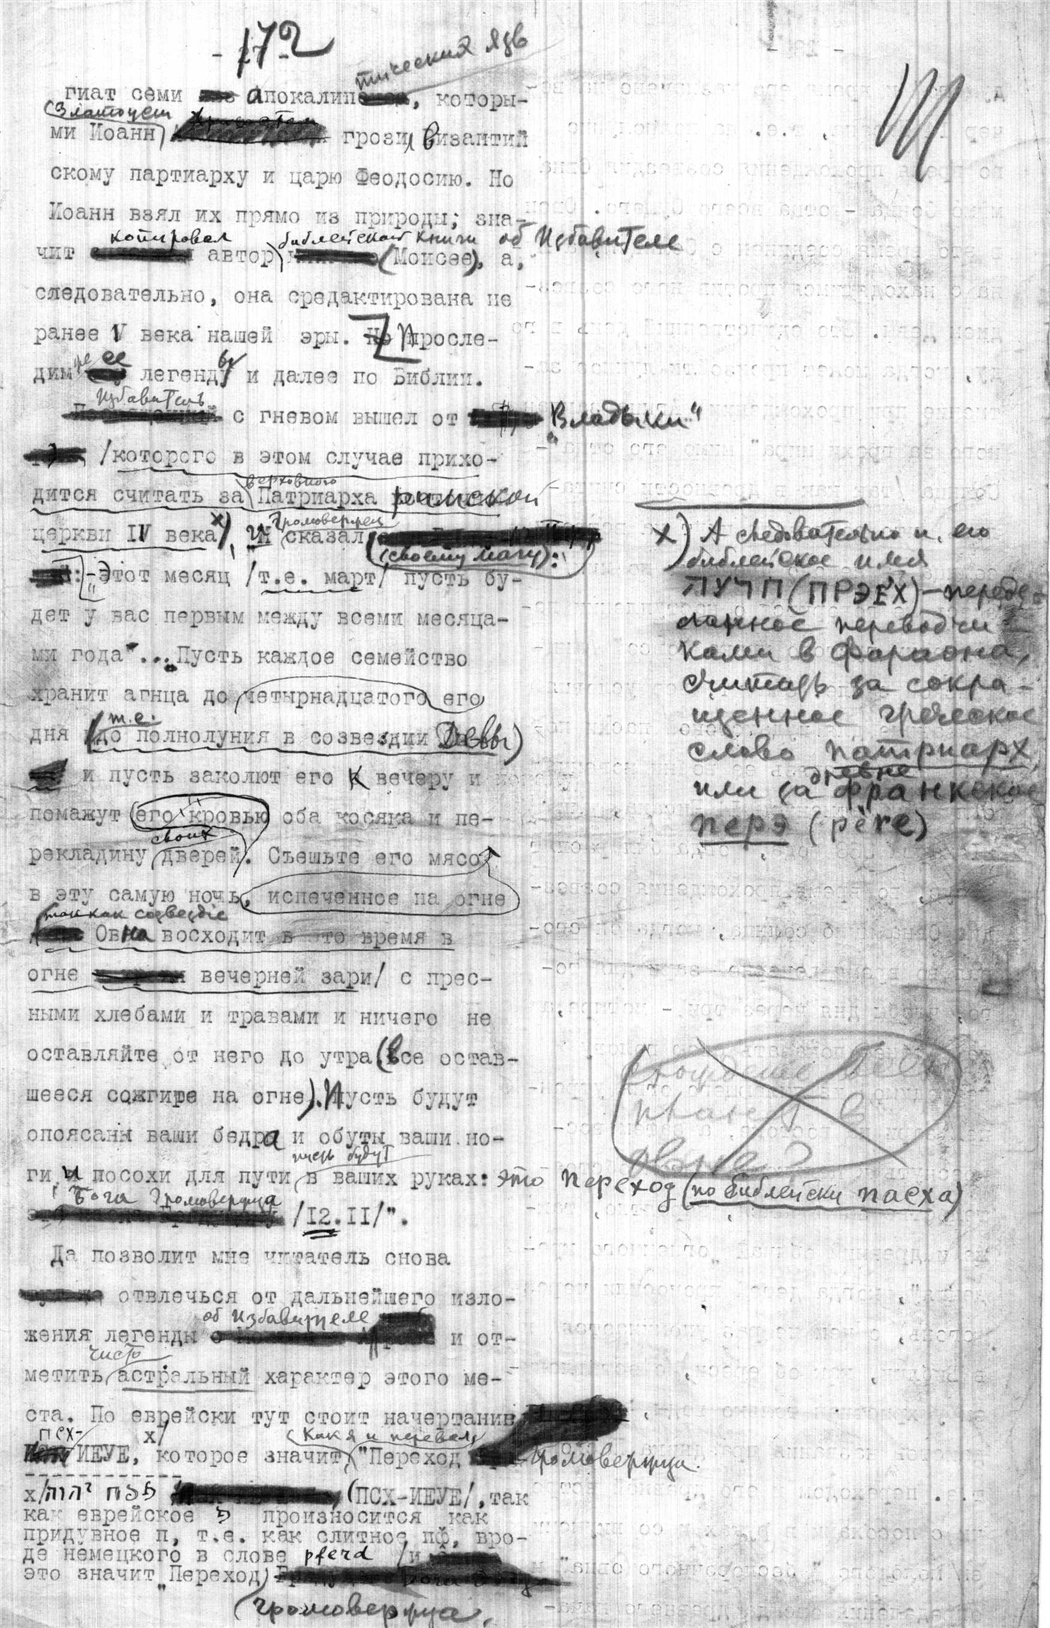 - 172 -
тических язв
гиат семи апокалип, которы-
(Златоуст)
ми Иоанн грозил византий
скому партиарху и царю Феодосию. Но
Иоанн взял их прямо из природы; зна-
копировал библейской книги об Избавителе
чит автор (Моисее), а,
следовательно, она средактирована не
ранее V века нашей эры. Просле-
ее
дим легенду и далее по Библии.
Избавитель
с гневом вышел от "Владыки"
/которого в этом случае прихо-
верховного
дится считать за Патриарха римской
церкви IV века x), и
Громовержец
сказал
(своему магу):
"Этот месяц /т.е. март/ пусть бу-
дет у вас первым между всеми месяца-
ми года"... "Пусть каждое семейство
хранит агнца до четырнадцатого его
т.е.
дня (до полнолуния в созвездии Девы)
и пусть заколют его к вечеру и
помажут его кровью оба косяка и пе-
своих
рекладину дверей. Съешьте его мясо
в эту самую ночь, испеченное на огне
(так как созвездие
Овна восходит в это время в
огне вечерней зари/ с прес-
ными хлебами и травами и ничего не
оставляйте от него до утра (все остав-
шееся сожгите на огне). Пусть будут
опоясаны ваши бедра и обуты ваши но-
пусть будут
ги, и посохи для пути в ваших руках: это переход (по библейски пасха)
Бога Громовержца
/12.II/".
Да позволит мне читатель снова
отвлечься от дальнейшего изло-
об Избавителе
жения легенды и от-
чисто
метить астральный характер этого ме-
ста. По еврейски тут стоит начертание
ПСХ- x/ (как я и перевел)
ИЕУЕ, которое значит "Переход Громовержца.
x/ יהוה פסח (ПСХ-ИЕУЕ/, так
как еврейское פ произносится как
придувное п, т.е. как слитное пф, вро-
де немецкого в слове pferd /и
это значит "Переход
Громовержца.
x) А следовательно и его
библейское имя
ПУЧП (ПРЭЕХ) - переде-
ланное переводчи-
ками в фараона,
считать за сокра-
щенное греческое
слово патриарх,
древне
или за франкское
перэ (père)